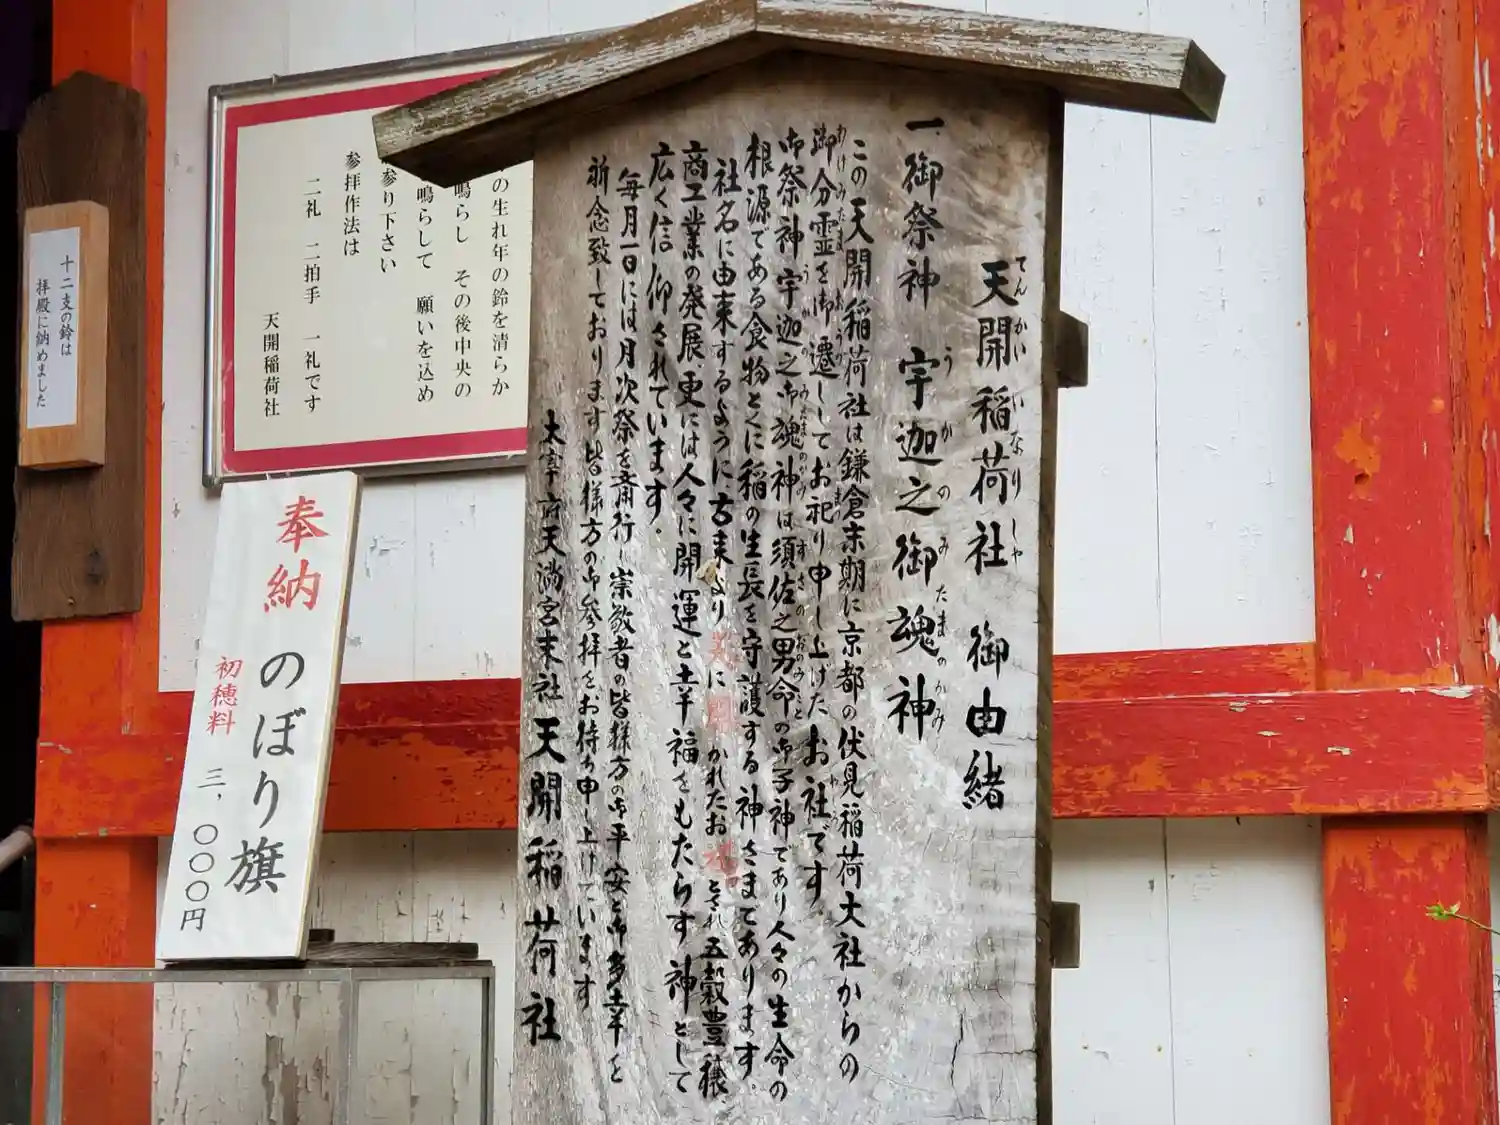 天開稲荷社 御由緒
てんかいいなりしゃ
一、御祭神 宇迦之御魂神
うかのみたまのかみ
この天開稲荷社は鎌倉末期に京都の伏見稲荷大社からの
御分霊を御遷ししてお祀り申し上げたお社です。
御祭神宇迦之御魂神は須佐之男命の御子神であり人々の生命の
根源である食物とくに稲の生長を守護する神さまであります。
社名に由来するように、古来より天に開かれたお とされ五穀豊穣
商工業の発展、更には人々に開運と幸福をもたらす神として
広く信仰されています。
毎月一日には月次祭を斎行し崇敬者の皆様方の御平安と御多幸と
祈念致しております 皆様方の御参拝をお待ち申し上げています
太宰府天満宮末社 天開稲荷社
の生れ年の鈴を清らか
鳴らし その後中央の
鳴らして 願いを込め
参り下さい
参拝作法は
二礼 二拍手 一礼です
天開稲荷社
奉納 のぼり旗
初穂料 三，〇〇〇円
十二支の鈴は
拝殿に納めました